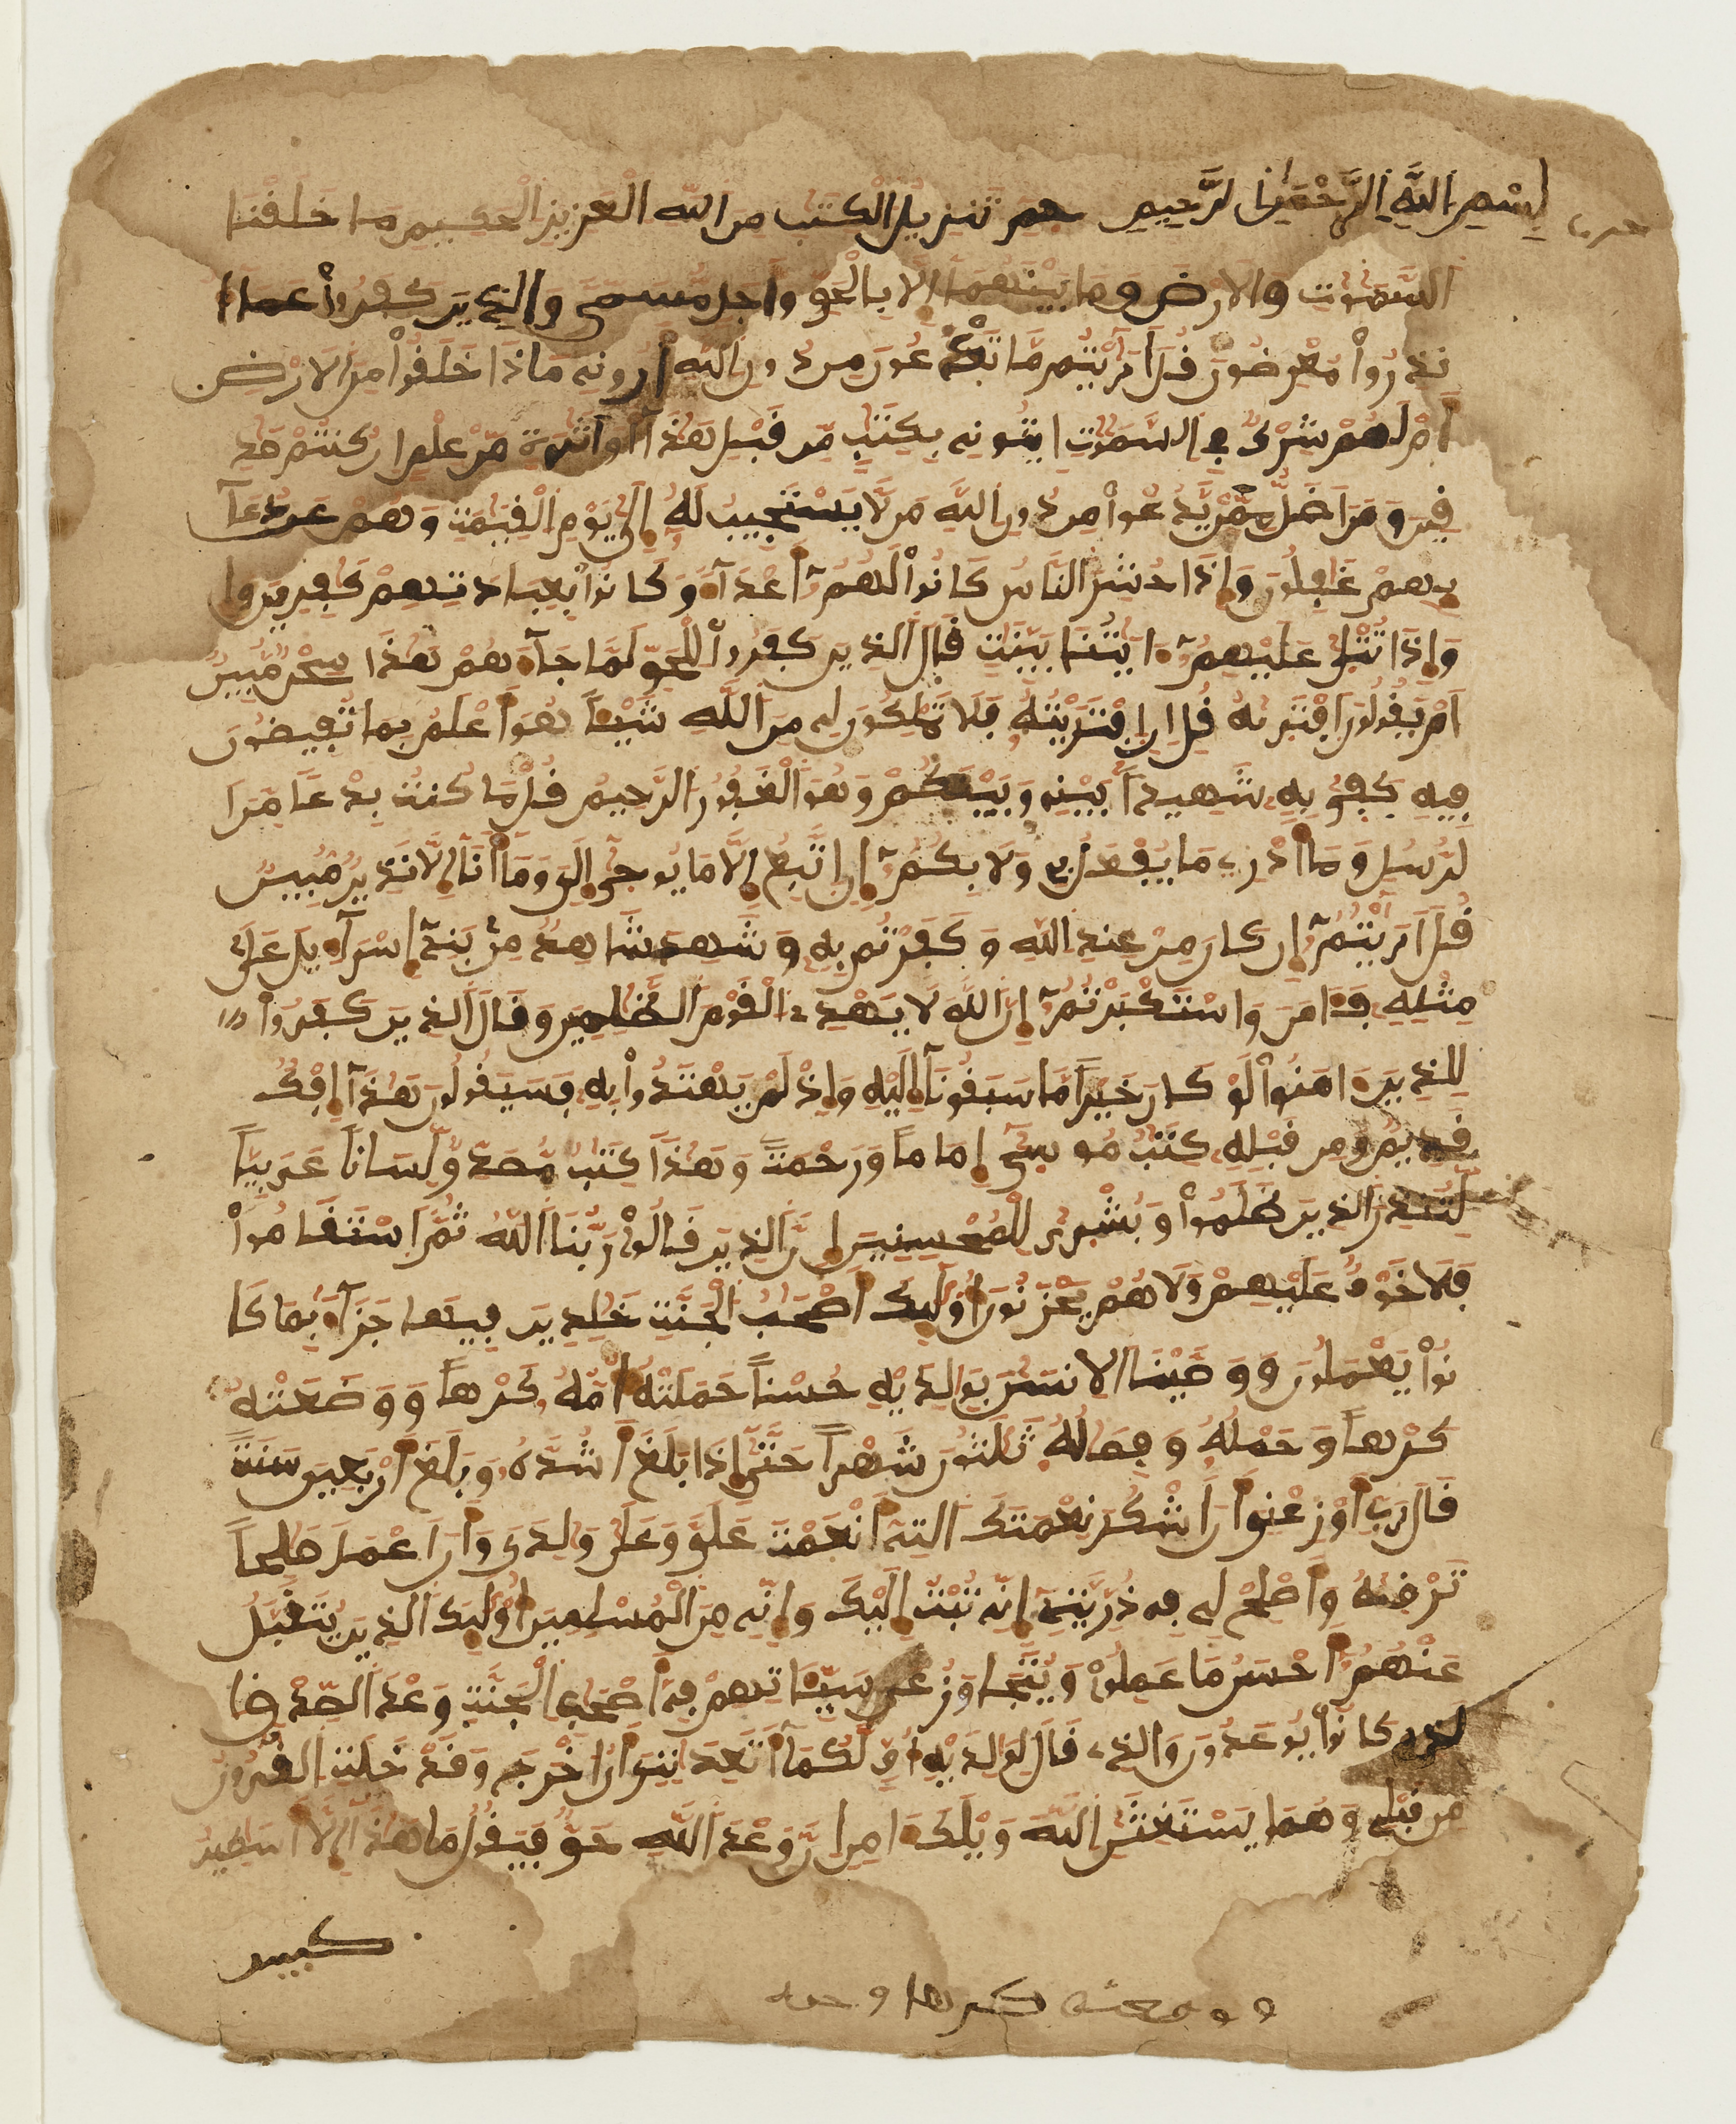 بسم الله الرحمن الرحيم حم تنزيل الكتب من الله العزيز الحكيم ما خلقنا
السموت والارض وما بينهما الا بالحق واجل مسمى والذين كفروا عما ا
نذروا معرضون قل اريتم ما تدعون من دون الله اروني ماذا خلقوا من الارض
ام لهم شرك في السموت ايتوني بكتب من قبل هذا او اثرة من علم ان كنتم صد
قين ومن اضل ممن يدعوا من دون الله من لا يستجيب له الى يوم القيمة وهم عن دعا
يهم غفلون واذا حشر الناس كانوا لهم اعداء وكانوا بعبادتهم كفرين وا
واذا تتلى عليهم ايتنا بينت قال الذين كفروا للحق لما جاءهم هذا سحر مبين
ام يقولون افتريه قل ان افتريته فلا تملكون لي من الله شيئا هو اعلم بما تفيضون
فيه كفى به شهيدا بيني وبينكم وهو الغفور الرحيم قل ما كنت بدعا من ا
لرسل وما ادري ما يفعل بي ولا بكم ان اتبع الا ما يوحى الي وما انا الا نذير مبين
قل اريتم ان كان من عند الله وكفرتم به وشهد شاهد من بني اسراءيل على
مثله فامن واستكبرتم ان الله لا يهدي القوم الظلمين وقال الذين كفروا
للذين امنوا لو كان خيرا ما سبقونا اليه واذ لم يهتدوا به فسيقولون هذا افك
قديم ومن قبله كتب موسى اماما ورحمة وهذا كتب مصدق لسانا عربيا
لتنذر الذين ظلموا وبشرى للمحسنين ان الذين قالوا ربنا الله ثم استقاموا
فلا خوف عليهم ولا هم يحزنون اوليك اصحب الجنة خلدين فيها جزاء بما كا
نوا يعملون ووصينا الانسن بولديه حسنا حملته امه كرها ووضعته
كرها وحمله وفصله ثلثون شهرا حتى اذا بلغ اشده وبلغ اربعين سنة
قال رب اوزعني ان اشكر نعمتك التي انعمت علي وعلى ولدي وان اعمل صلحا
ترضيه واصلح لي في ذريتي اني تبت اليك واني من المسلمين اوليك الذين يتقبل
عنهم احسن ما عملوا ويتجاوز عن سيئاتهم في اصحب الجنة وعد الصدق ا
لذي كانوا يوعدون والذي قال لولديه اف لكما اتعدنني ان اخرج وقد خلت القرون
من قبلي وهما يستغيثن الله ويلك امن ان وعد الله حق فيقول ما هذا الا اسطير
ووضعته كرها وحمله